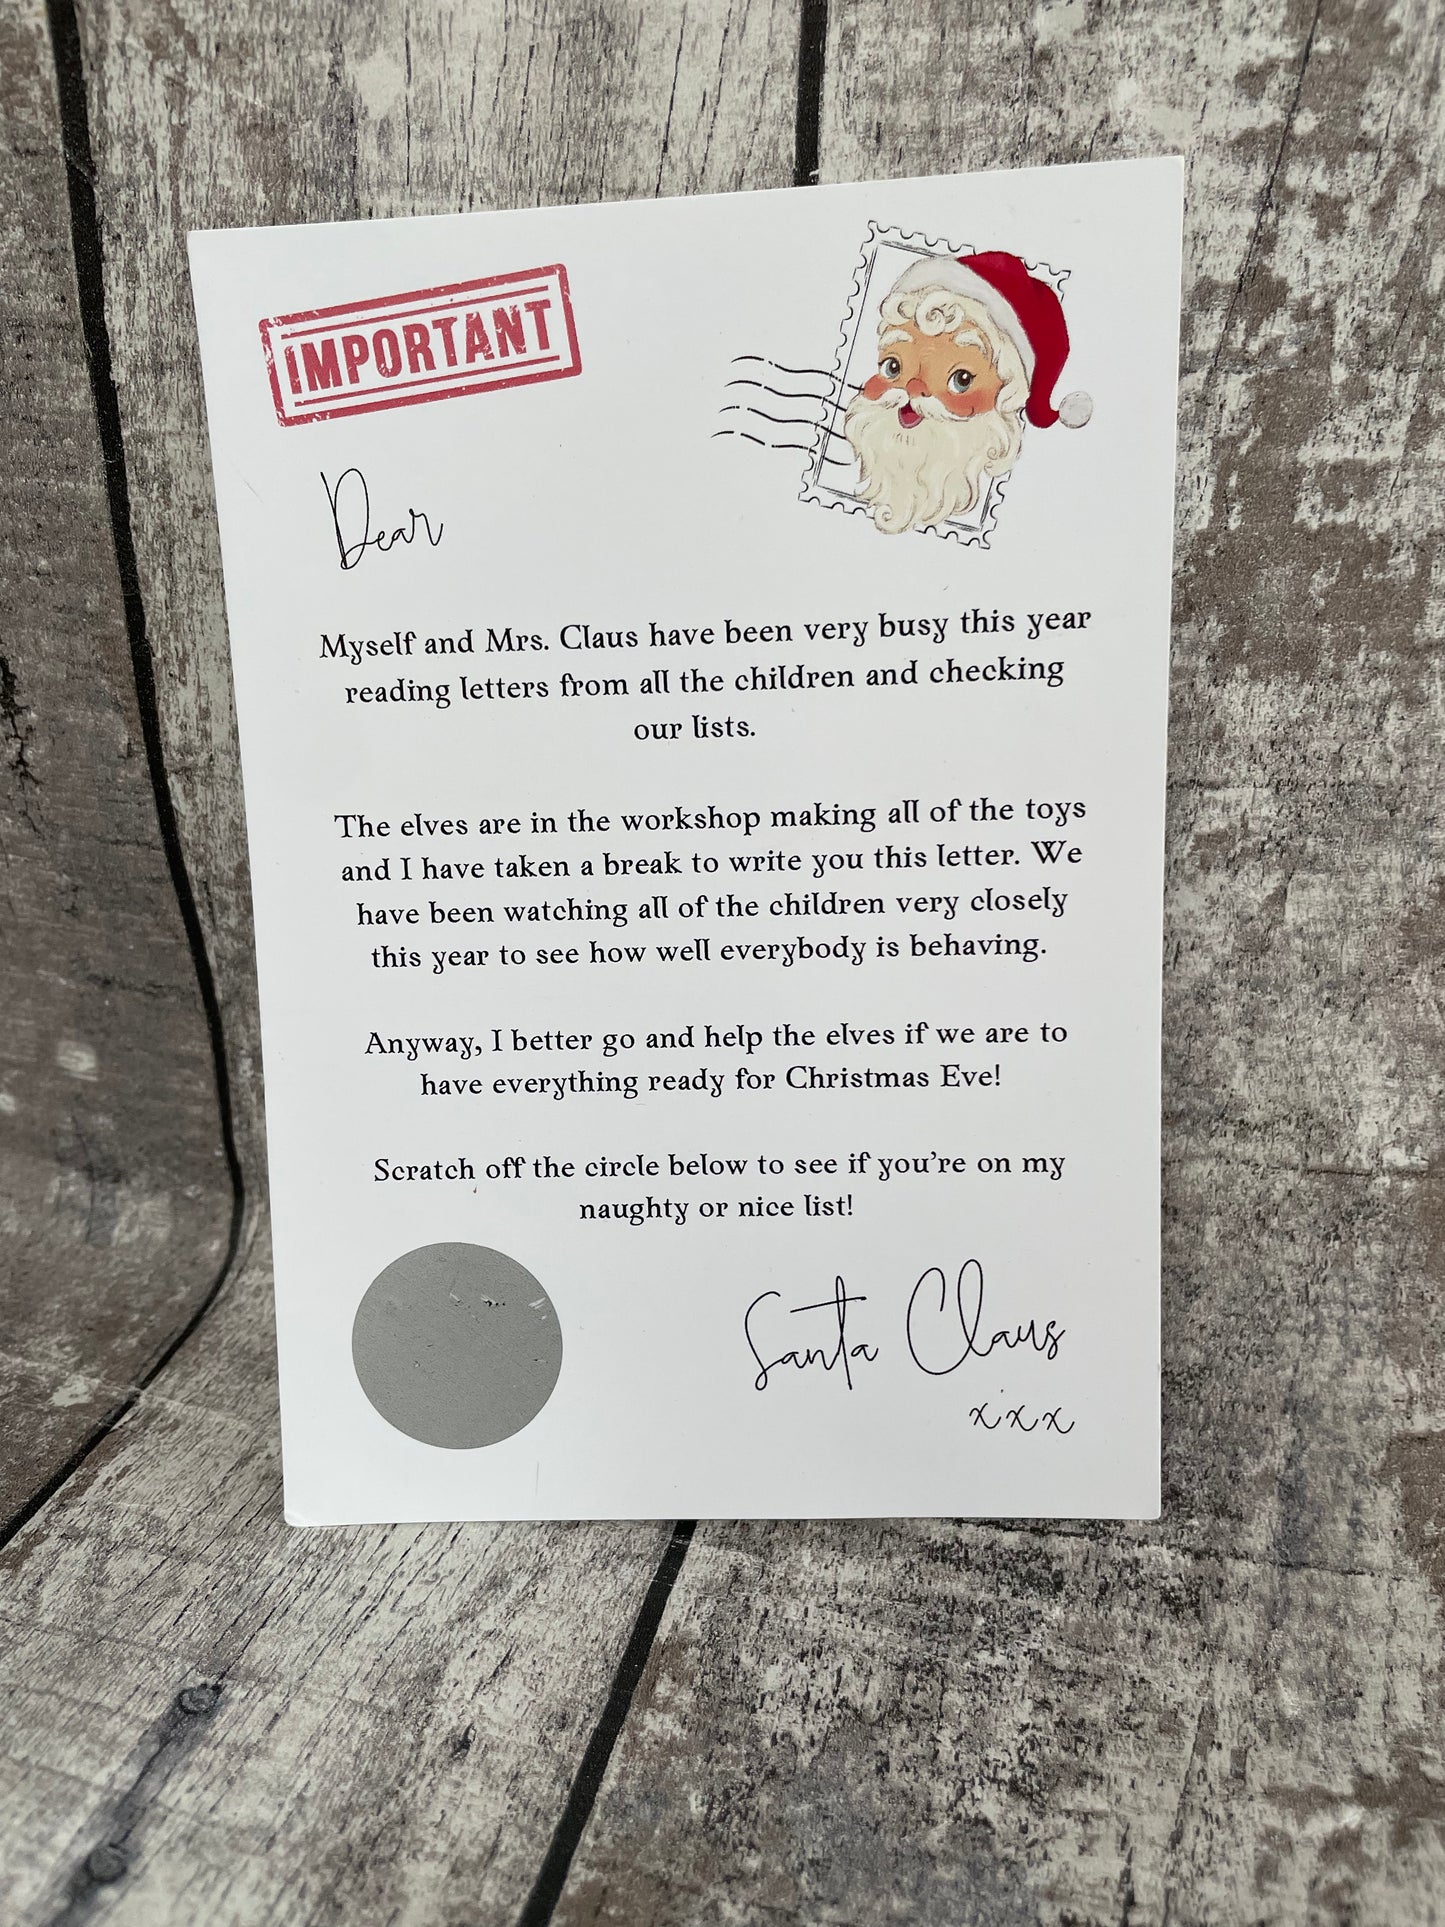 IMPORTANT
Dear
Myself and Mrs. Claus have been very busy this year
reading letters from all the children and checking
our lists.
The elves are in the workshop making all of the toys
and I have taken a break to write you this letter. We
have been watching all of the children very closely
this year to see how well everybody is behaving.
Anyway, I better go and help the elves if we are to
have everything ready for Christmas Eve!
Scratch off the circle below to see if you're on my
naughty or nice list!
Santa Claus
xxx